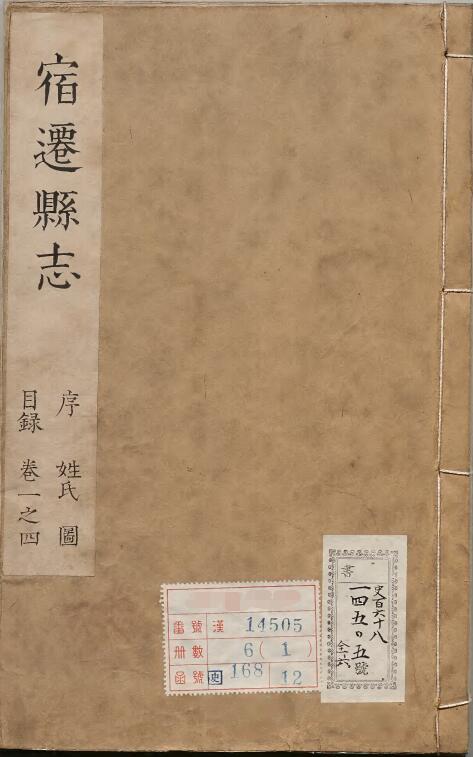 宿遷縣志
序 姓氏 圖
目錄 卷一之四
書
史百六十八
一四五〇五號
全六
番號 漢 14505
册數 6(1)
函號 史 168 12